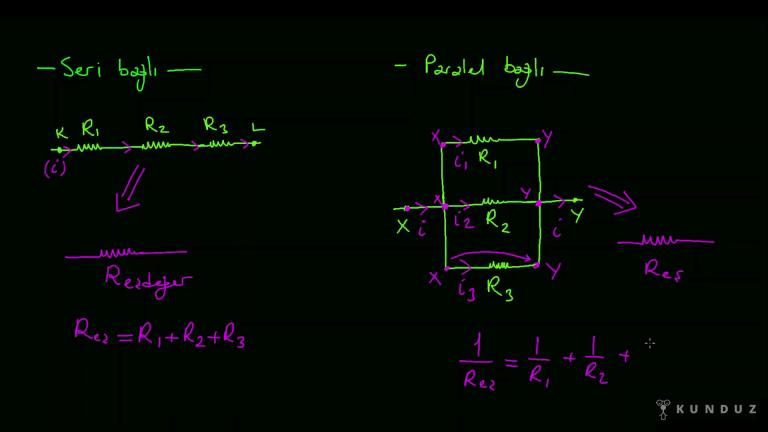 — Seri bağlı —
K R₁ R₂ R₃ L
(i)
Reşdeğer
Reş = R₁ + R₂ + R₃
- Paralel bağlı —
X Y
i₁ R₁
X Y
X i i₂ R₂ i Y
X Y
i₃ R₃
Reş
1/Reş = 1/R₁ + 1/R₂ +
KUNDUZ